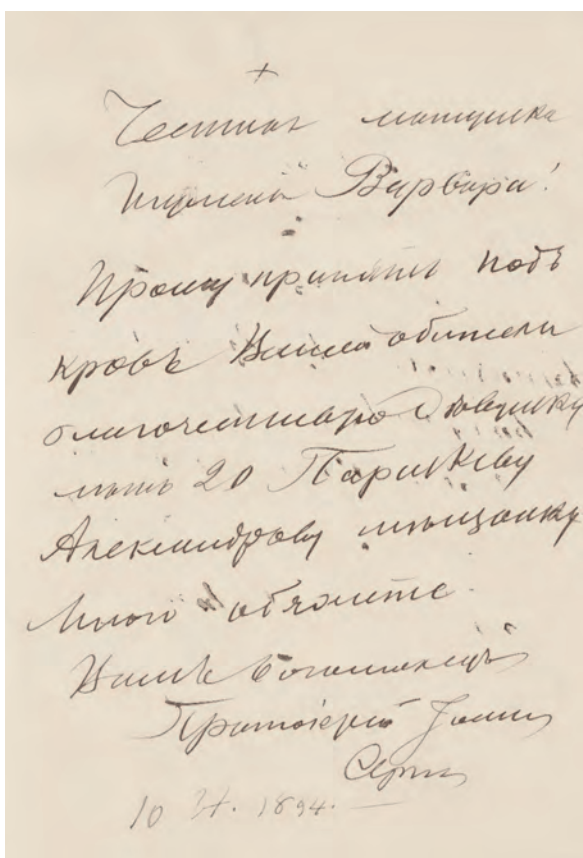 +
Честная матушка
Игуменья Варвара!
Прошу принять подъ
кровъ Вашей обители
благочестивую девушку
летъ 20 Параскеву
Александрову мещанку
Много обяжете.
Вашъ богомолецъ
Протоіерей Іоаннъ
Сергіев
10 1894.